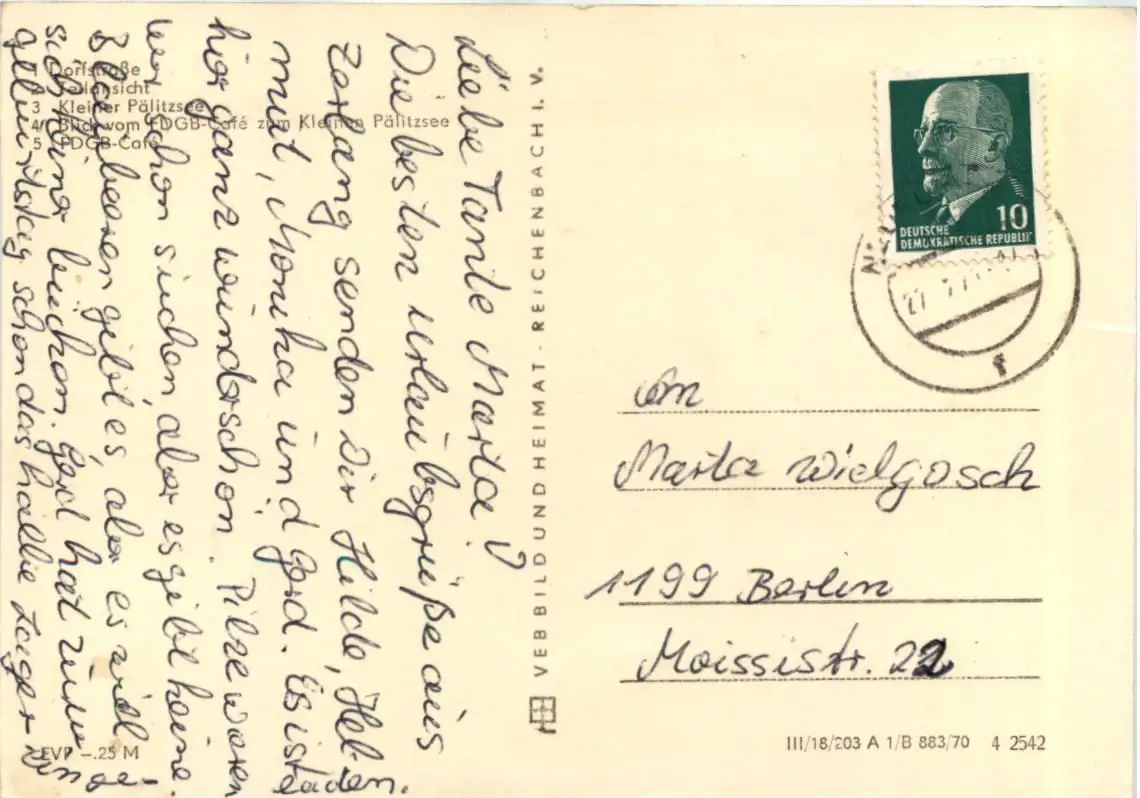 1 Dorfstraße
2 Teilansicht
3 Kleiner Pälitzsee
4 Blick vom FDGB-Café zum Kleinen Pälitzsee
5 FDGB-Café
Liebe Tante Marta!
Die besten Urlaubsgrüße aus
senden Dir Hilde, Hel-
mut, Monika und Gerd. Es ist
hier ganz wunderschön. Pilze waren
wir schon suchen aber es gibt keine.
Blaubeeren gibt es, aber es will
sich keiner bücken. Gerd hat zum Ge-
burtstag schon das halbe Lager
EVP –.25 M
VEB BILD UND HEIMAT - REICHENBACH I. V.
10
DEUTSCHE
DEMOKRATISCHE REPUBLIK
27.7.71
Marta Wielgosch
1199 Berlin
Moissistr. 22
III/18/203 A 1/B 883/70 4 2542